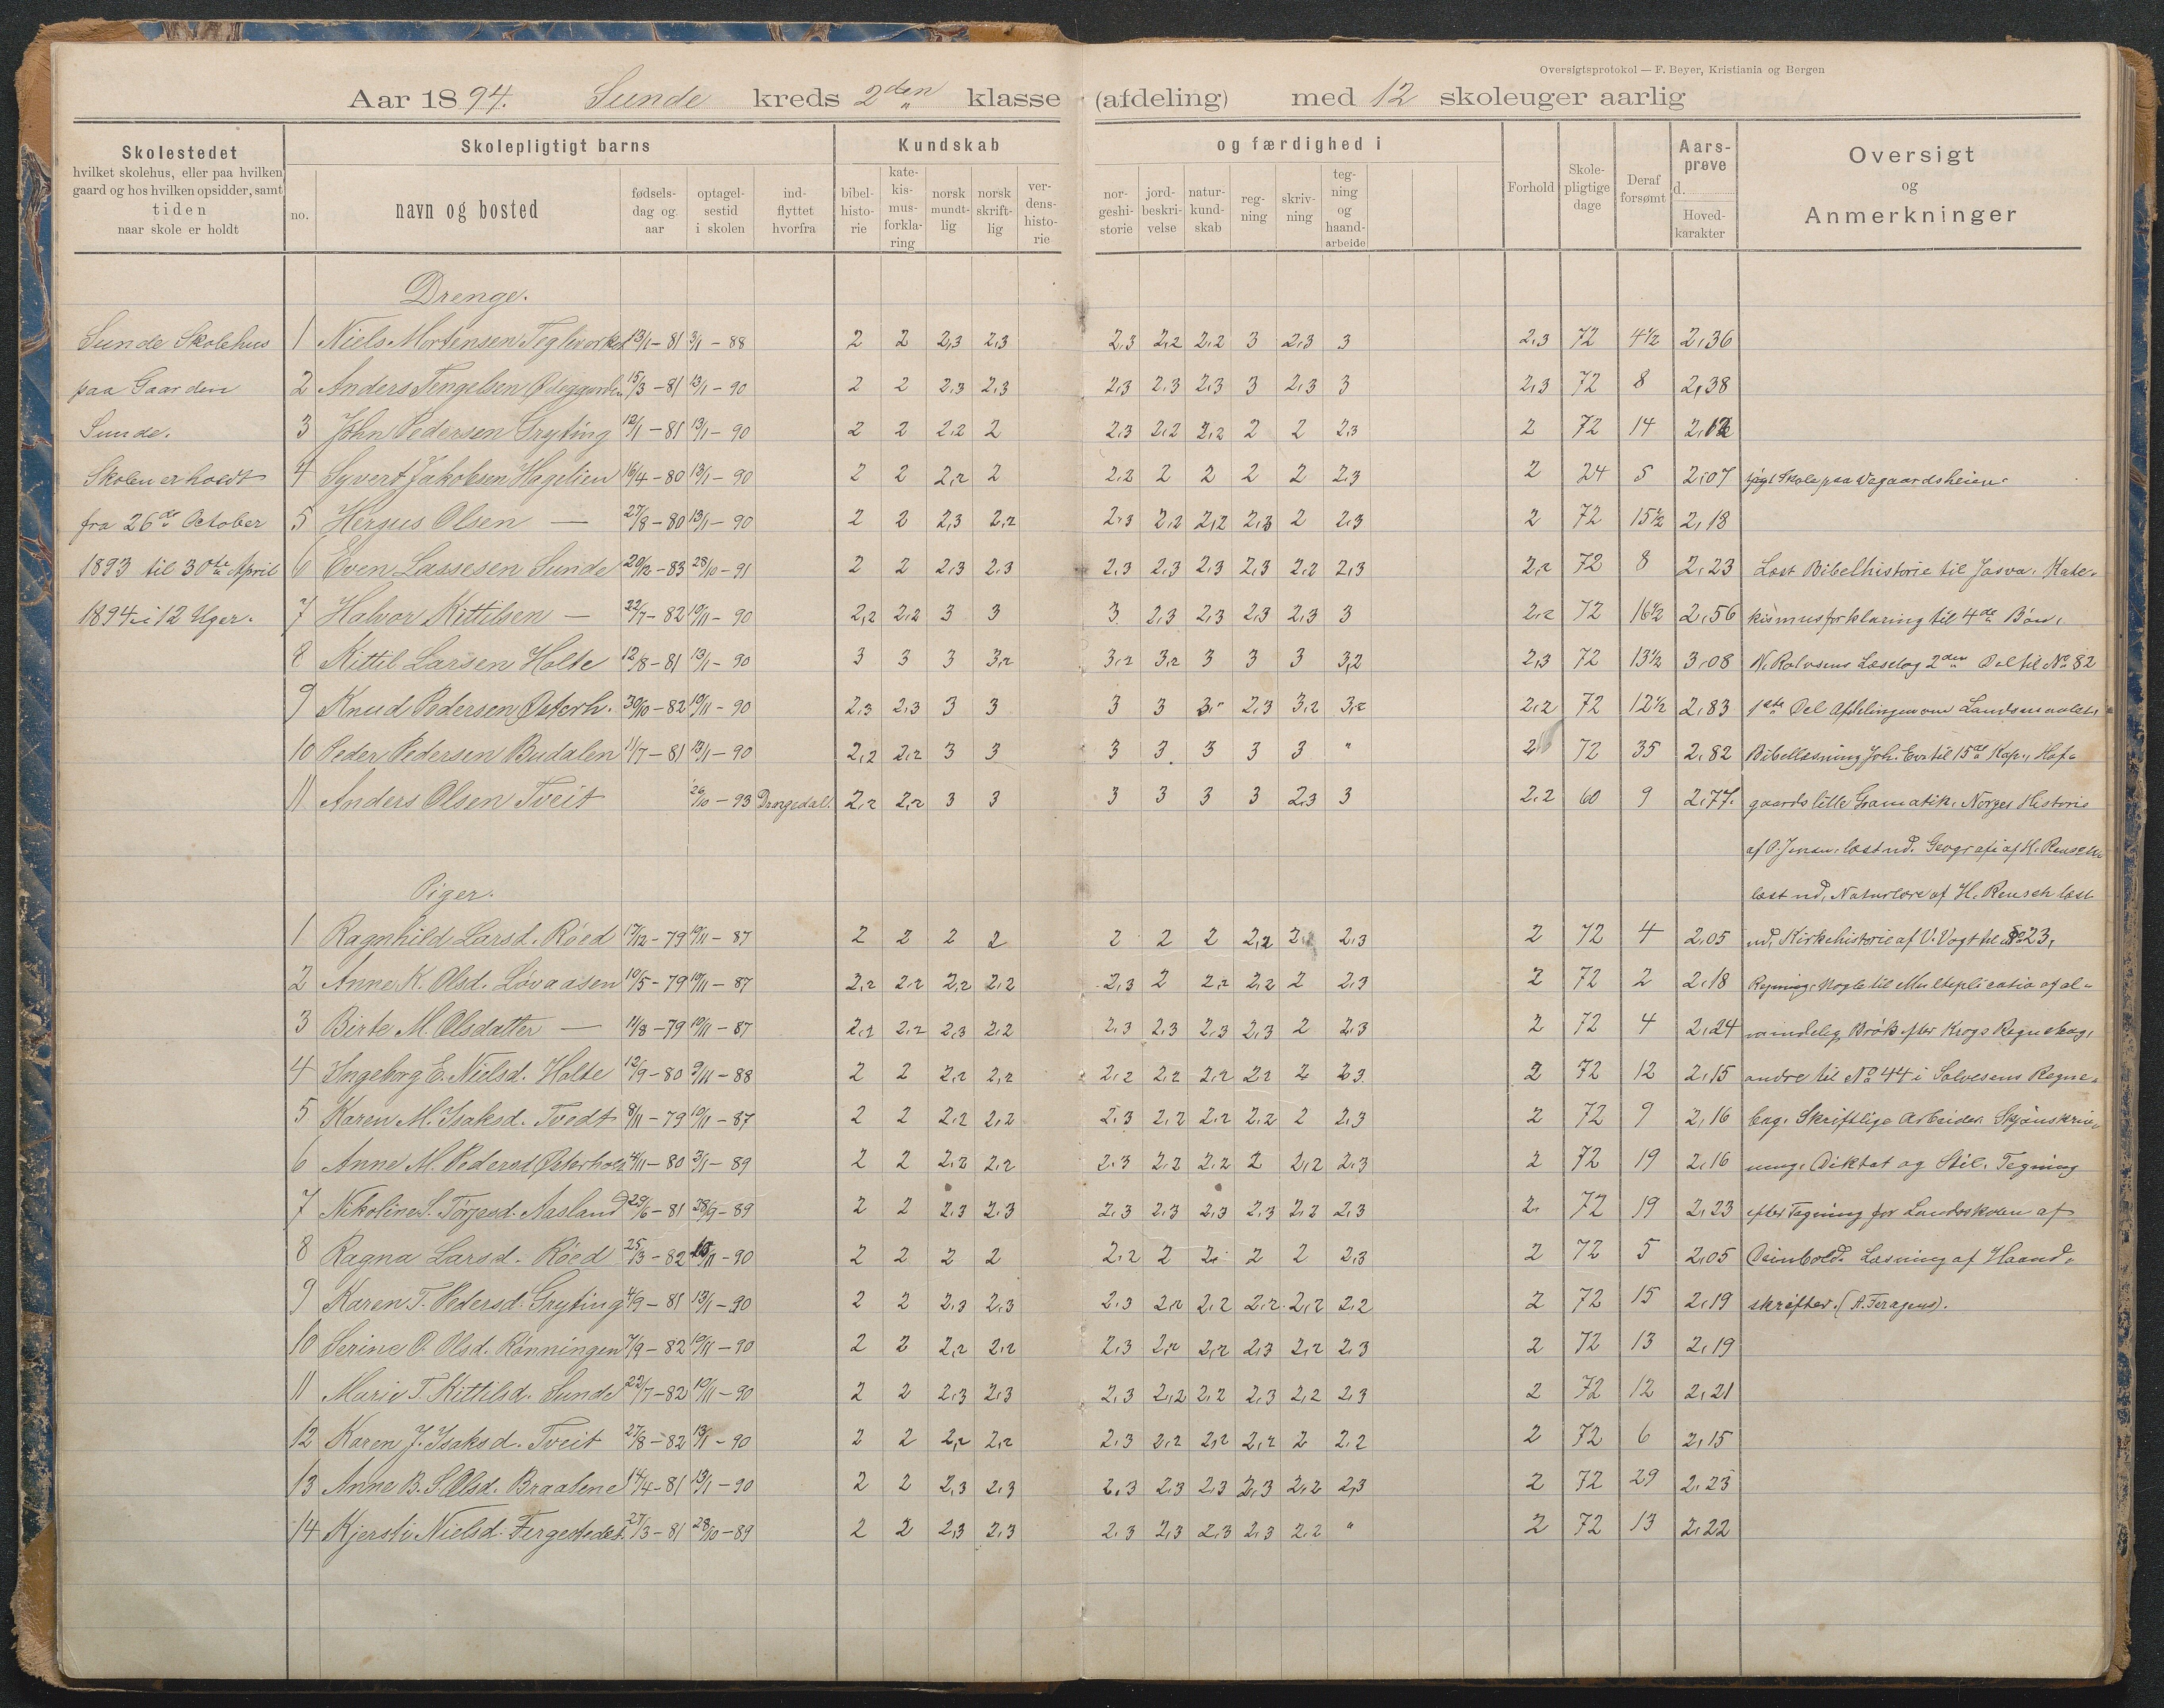 Oversigtsprotokol — F. Beyer, Kristiania og Bergen
Aar 1894. Sunde kreds 2den klasse (afdeling) med 12 skoleuger aarlig
Skolestedet
hvilket skolehus, eller paa hvilken
gaard og hos hvilken opsidder, samt
tiden
naar skole er holdt
Skolepligtigt barns
no.
navn og bosted
fødsels-dag og aar
optagel-sestid i skolen
ind-flyttet hvorfra
Kundskab og færdighed i
bibel-histo-rie
kate-kis-mus-forkla-ring
norsk mundt-lig
norsk skrift-lig
ver-dens-histo-rie
nor-geshi-storie
jord-beskri-velse
natur-kund-skab
reg-ning
skriv-ning
teg-ning og haand-arbeide
Forhold
Skole-pligtige dage
Deraf forsømt
Aars-prøve
d.
Hoved-karakter
Oversigt
og
Anmerkninger
Drenge.
Sunde Skolehus 1 Niels Mortensen Teglverket 13/1 – 81 3/1 – 88 2 2 2,3 2,3 2,3 2,2 2,2 3 2,3 3 2,3 72 4 1/2 2,36
paa Gaarden 2 Anders Tengelsen 15/3 – 81 13/1 – 90 2 2 2,3 2,3 2,3 2,3 2,3 3 2,3 3 2,3 72 8 2,38
Sunde. 3 John Pedersen Gryting 12/1 – 81 13/1 – 90 2 2 2,2 2 2,3 2,2 2,2 2 2 2,3 2 72 14
Skolen er holdt 4 Syvert Jakobsen Hagelien 16/4 – 80 13/1 – 90 2 2 2,2 2 2,2 2 2 2 2 2,3 2 24 5 2,07 Skole paa Vegaardsheien.
fra 26de October 5 Hergus Olsen — 27/8 – 80 13/1 – 90 2 2 2,3 2,2 2,3 2,2 2,2 2,3 2 2,3 2 72 15 1/2 2,18
1893 til 30te April 6 Even Lassesen Sunde 20/12 – 83 28/10 – 91 2 2 2,3 2,3 2,3 2,3 2,3 2,3 2,2 2,3 2,2 72 8 2,23 Læst Bibelhistorie til Josva. Kate-
1894 i 12 Uger. 7 Halvor Kittilsen — 22/7 – 82 10/11 – 90 2,2 2,2 3 3 3 2,3 2,3 2,3 2,3 3 2,2 72 16 1/2 2,56 kismusforklaring til 4de Bøn.
8 Kittil Larsen Holte 12/8 – 81 13/1 – 90 3 3 3 3,2 3,2 3,2 3 3 3 3,2 2,3 72 13 1/2 3,08 N. Rolvsens Læsebog 2den Del til No 82
9 Knud Pedersen Østerh. 30/10 – 82 10/11 – 90 2,3 2,3 3 3 3 3 3,2 2,3 3,2 3,2 2,2 72 12 1/2 2,83 1ste Del Afdelingen om Landsmaalet.
10 Peder Pedersen Budalen 11/7 – 81 13/1 – 90 2,2 2,2 3 3 3 3 3 3 3 " 2 72 35 2,82 Bibellæsning Joh. Ev. til 15de Kap., Hof-
11 Anders Olsen Tveit 26/10 – 93 Drangedal. 2,2 2,2 3 3 3 3 3 3 2,3 3 2,2 60 9 2,77. gaards lille Gramatik. Norges Historie
af O. Jensen læst ud. Geografi af H. Reusch
Piger. læst ud, Naturlære af H. Reusch læst
1 Ragnhild Larsd. Röed 17/12 – 79 10/11 – 87 2 2 2 2 2 2 2 2,2 2,2 2,3 2 72 4 2,05 ud, Kirkehistorie af V. Vogt til § 23,
2 Anne K. Olsd. Lövaasen 10/5 – 79 10/11 – 87 2,2 2,2 2,2 2,2 2,3 2 2,2 2,2 2 2,3 2 72 2 2,18 Regning: Nogle til Multiplication af al-
3 Birte M. Olsdatter — 11/8 – 79 10/11 – 87 2,2 2,2 2,3 2,2 2,3 2,3 2,3 2,3 2 2,3 2 72 4 2,24 mindelig Brök efter Krogs Regnebog,
4 Ingeborg E. Nielsd. Holte 12/9 – 80 9/11 – 88 2 2 2,2 2,2 2,2 2,2 2,2 2,2 2 2,3 2 72 12 2,15 andre til No 44 i Solvesens Regne-
5 Karen M. Isaksd. Tvedt 8/11 – 79 10/11 – 87 2 2 2,2 2,2 2,3 2,2 2,2 2,2 2 2,3 2 72 9 2,16 bog. Skriftlige Arbeider: Skjönskriv-
6 Anne M. Pedersd Østerholt 4/11 – 80 3/1 – 89 2 2 2,2 2,2 2,3 2,2 2,2 2 2,2 2,3 2 72 19 2,16 ning. Diktat og Stil. Tegning
7 Nikoline S. Tørjesd. Aasland 29/6 – 81 28/9 – 89 2 2 2,3 2,3 2,3 2,3 2,3 2,3 2,2 2,3 2 72 19 2,23 efter Tegning for Landsskolen af
8 Ragna Larsd. Röed 25/3 – 82 10/11 – 90 2 2 2 2 2,2 2 2 2 2 2,3 2 72 5 2,05 Deinbold. Læsning af Haand-
9 Karen T. Pedersd. Gryting 4/9 – 81 13/1 – 90 2 2 2,3 2,3 2,3 2,2 2,2 2,2 2,2 2,2 2 72 15 2,19 skrifter.
10 Serine O. Olsd. Rönningen 7/9 – 82 10/11 – 90 2 2 2,2 2,2 2,3 2,2 2,2 2,3 2,2 2,3 2 72 13 2,19
11 Marie T. Kittilsd. Sunde 22/7 – 82 10/11 – 90 2 2 2,3 2,3 2,3 2,2 2,2 2,3 2,2 2,3 2 72 12 2,21
12 Karen J. Isaksd. Tveit 27/8 – 82 13/1 – 90 2 2 2,2 2,2 2,3 2,2 2,2 2,2 2 2,2 2 72 6 2,15
13 Anne B. S. Olsd. Braatene 14/4 – 81 13/1 – 90 2 2 2,3 2,3 2,3 2,3 2,3 2,3 2,2 2,3 2 72 29 2,23
14 Kjersti Nielsd. Fergestedet. 27/3 – 81 28/10 – 89 2 2 2,3 2,3 2,3 2,3 2,3 2,3 2,2 " 2 72 13 2,22